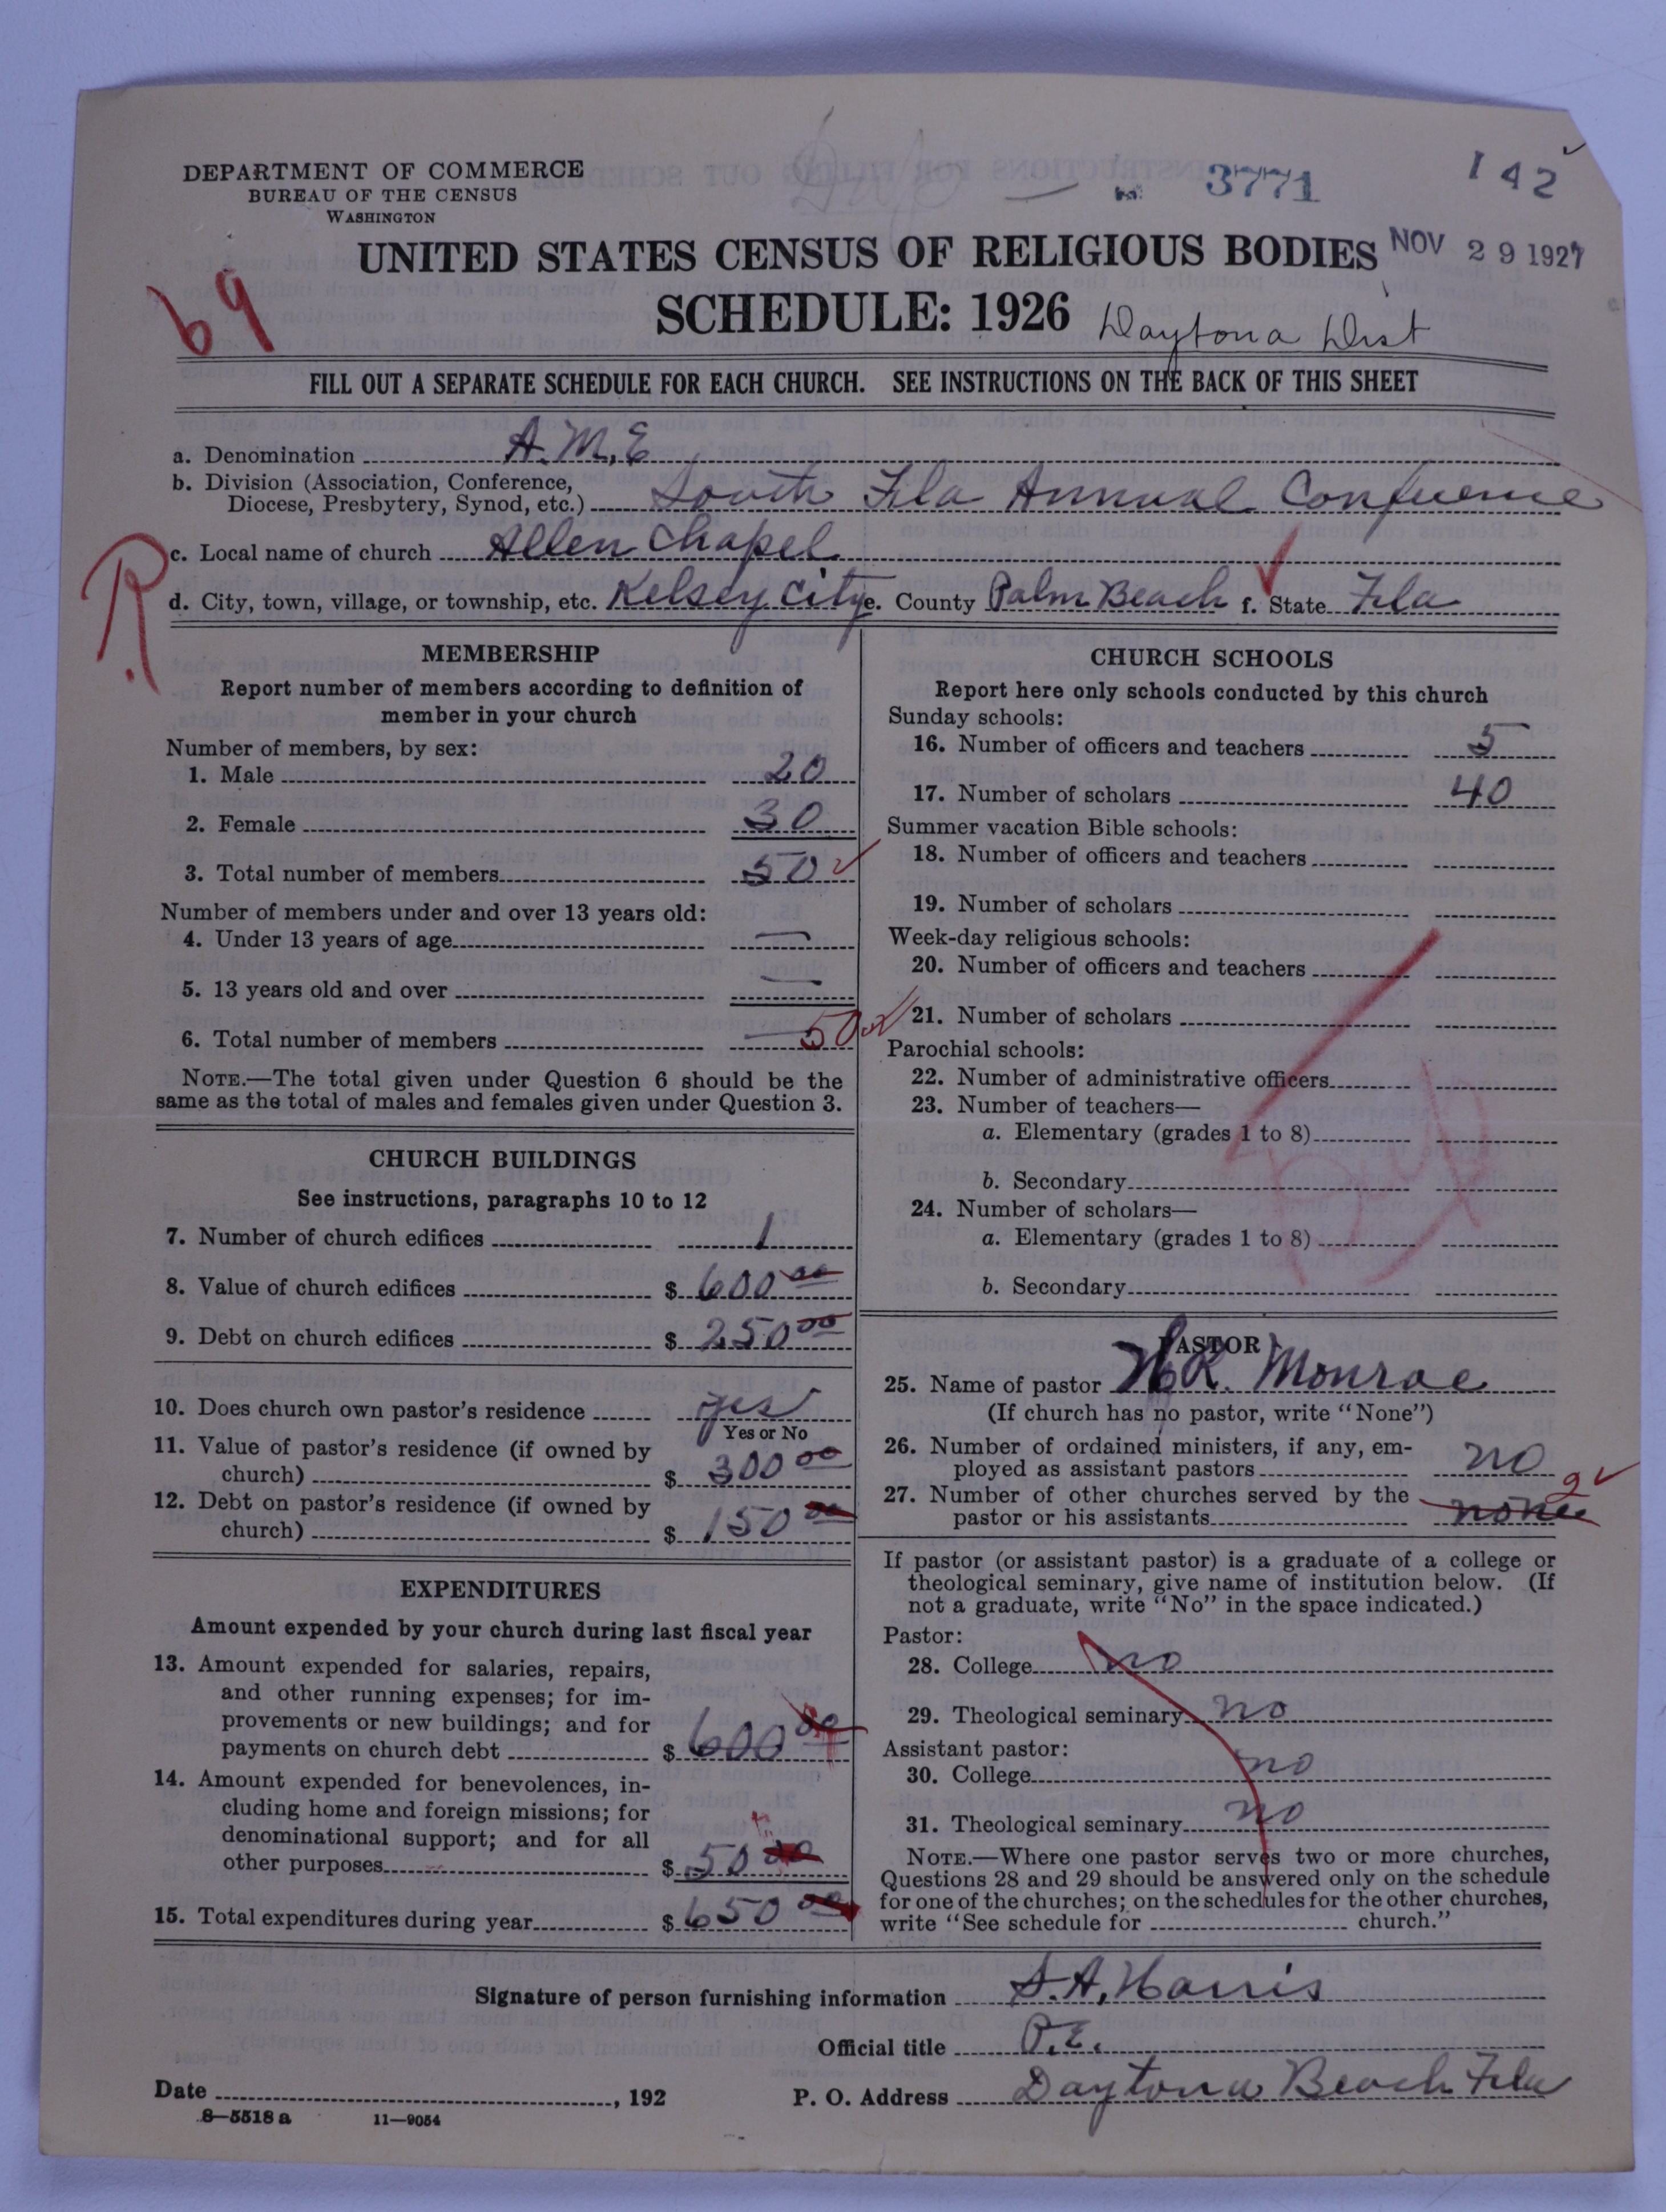 DEPARTMENT OF COMMERCE
BUREAU OF THE CENSUS
WASHINGTON
3771
142
UNITED STATES CENSUS OF RELIGIOUS BODIES
NOV 29 1927
SCHEDULE: 1926
Daytona Dist
69
FILL OUT A SEPARATE SCHEDULE FOR EACH CHURCH. SEE INSTRUCTIONS ON THE BACK OF THIS SHEET
a. Denomination A.M.E
b. Division (Association, Conference,
Diocese, Presbytery, Synod, etc.) South Fla Annual Conference
c. Local name of church Allen Chapel
R.
d. City, town, village, or township, etc. Kelsey City e. County Palm Beach f. State Fla
MEMBERSHIP
Report number of members according to definition of
member in your church
Number of members, by sex:
1. Male 20
2. Female 30
3. Total number of members 50
Number of members under and over 13 years old:
4. Under 13 years of age —
5. 13 years old and over —
6. Total number of members — 50
NOTE.—The total given under Question 6 should be the
same as the total of males and females given under Question 3.
CHURCH BUILDINGS
See instructions, paragraphs 10 to 12
7. Number of church edifices 1
8. Value of church edifices $ 600 00
9. Debt on church edifices $ 250 00
10. Does church own pastor's residence yes
Yes or No
11. Value of pastor's residence (if owned by
church) $ 300 00
12. Debt on pastor's residence (if owned by
church) $ 150 00
EXPENDITURES
Amount expended by your church during last fiscal year
13. Amount expended for salaries, repairs,
and other running expenses; for im-
provements or new buildings; and for
payments on church debt $ 600 00
14. Amount expended for benevolences, in-
cluding home and foreign missions; for
denominational support; and for all
other purposes $ 50 00
15. Total expenditures during year $ 650 00
CHURCH SCHOOLS
Report here only schools conducted by this church
Sunday schools:
16. Number of officers and teachers 5
17. Number of scholars 40
Summer vacation Bible schools:
18. Number of officers and teachers
19. Number of scholars
Week-day religious schools:
20. Number of officers and teachers
21. Number of scholars
Parochial schools:
22. Number of administrative officers
23. Number of teachers—
a. Elementary (grades 1 to 8)
b. Secondary
24. Number of scholars—
a. Elementary (grades 1 to 8)
b. Secondary
PASTOR
25. Name of pastor H R. Monroe
(If church has no pastor, write "None")
26. Number of ordained ministers, if any, em-
ployed as assistant pastors no
27. Number of other churches served by the
pastor or his assistants none 2
If pastor (or assistant pastor) is a graduate of a college or
theological seminary, give name of institution below. (If
not a graduate, write "No" in the space indicated.)
Pastor:
28. College no
29. Theological seminary no
Assistant pastor:
30. College no
31. Theological seminary no
NOTE.—Where one pastor serves two or more churches,
Questions 28 and 29 should be answered only on the schedule
for one of the churches; on the schedules for the other churches,
write "See schedule for church."
Signature of person furnishing information S.A. Harris
Official title P.E.
Date , 192
P. O. Address Daytona Beach Fla
8—5518 a 11—9054